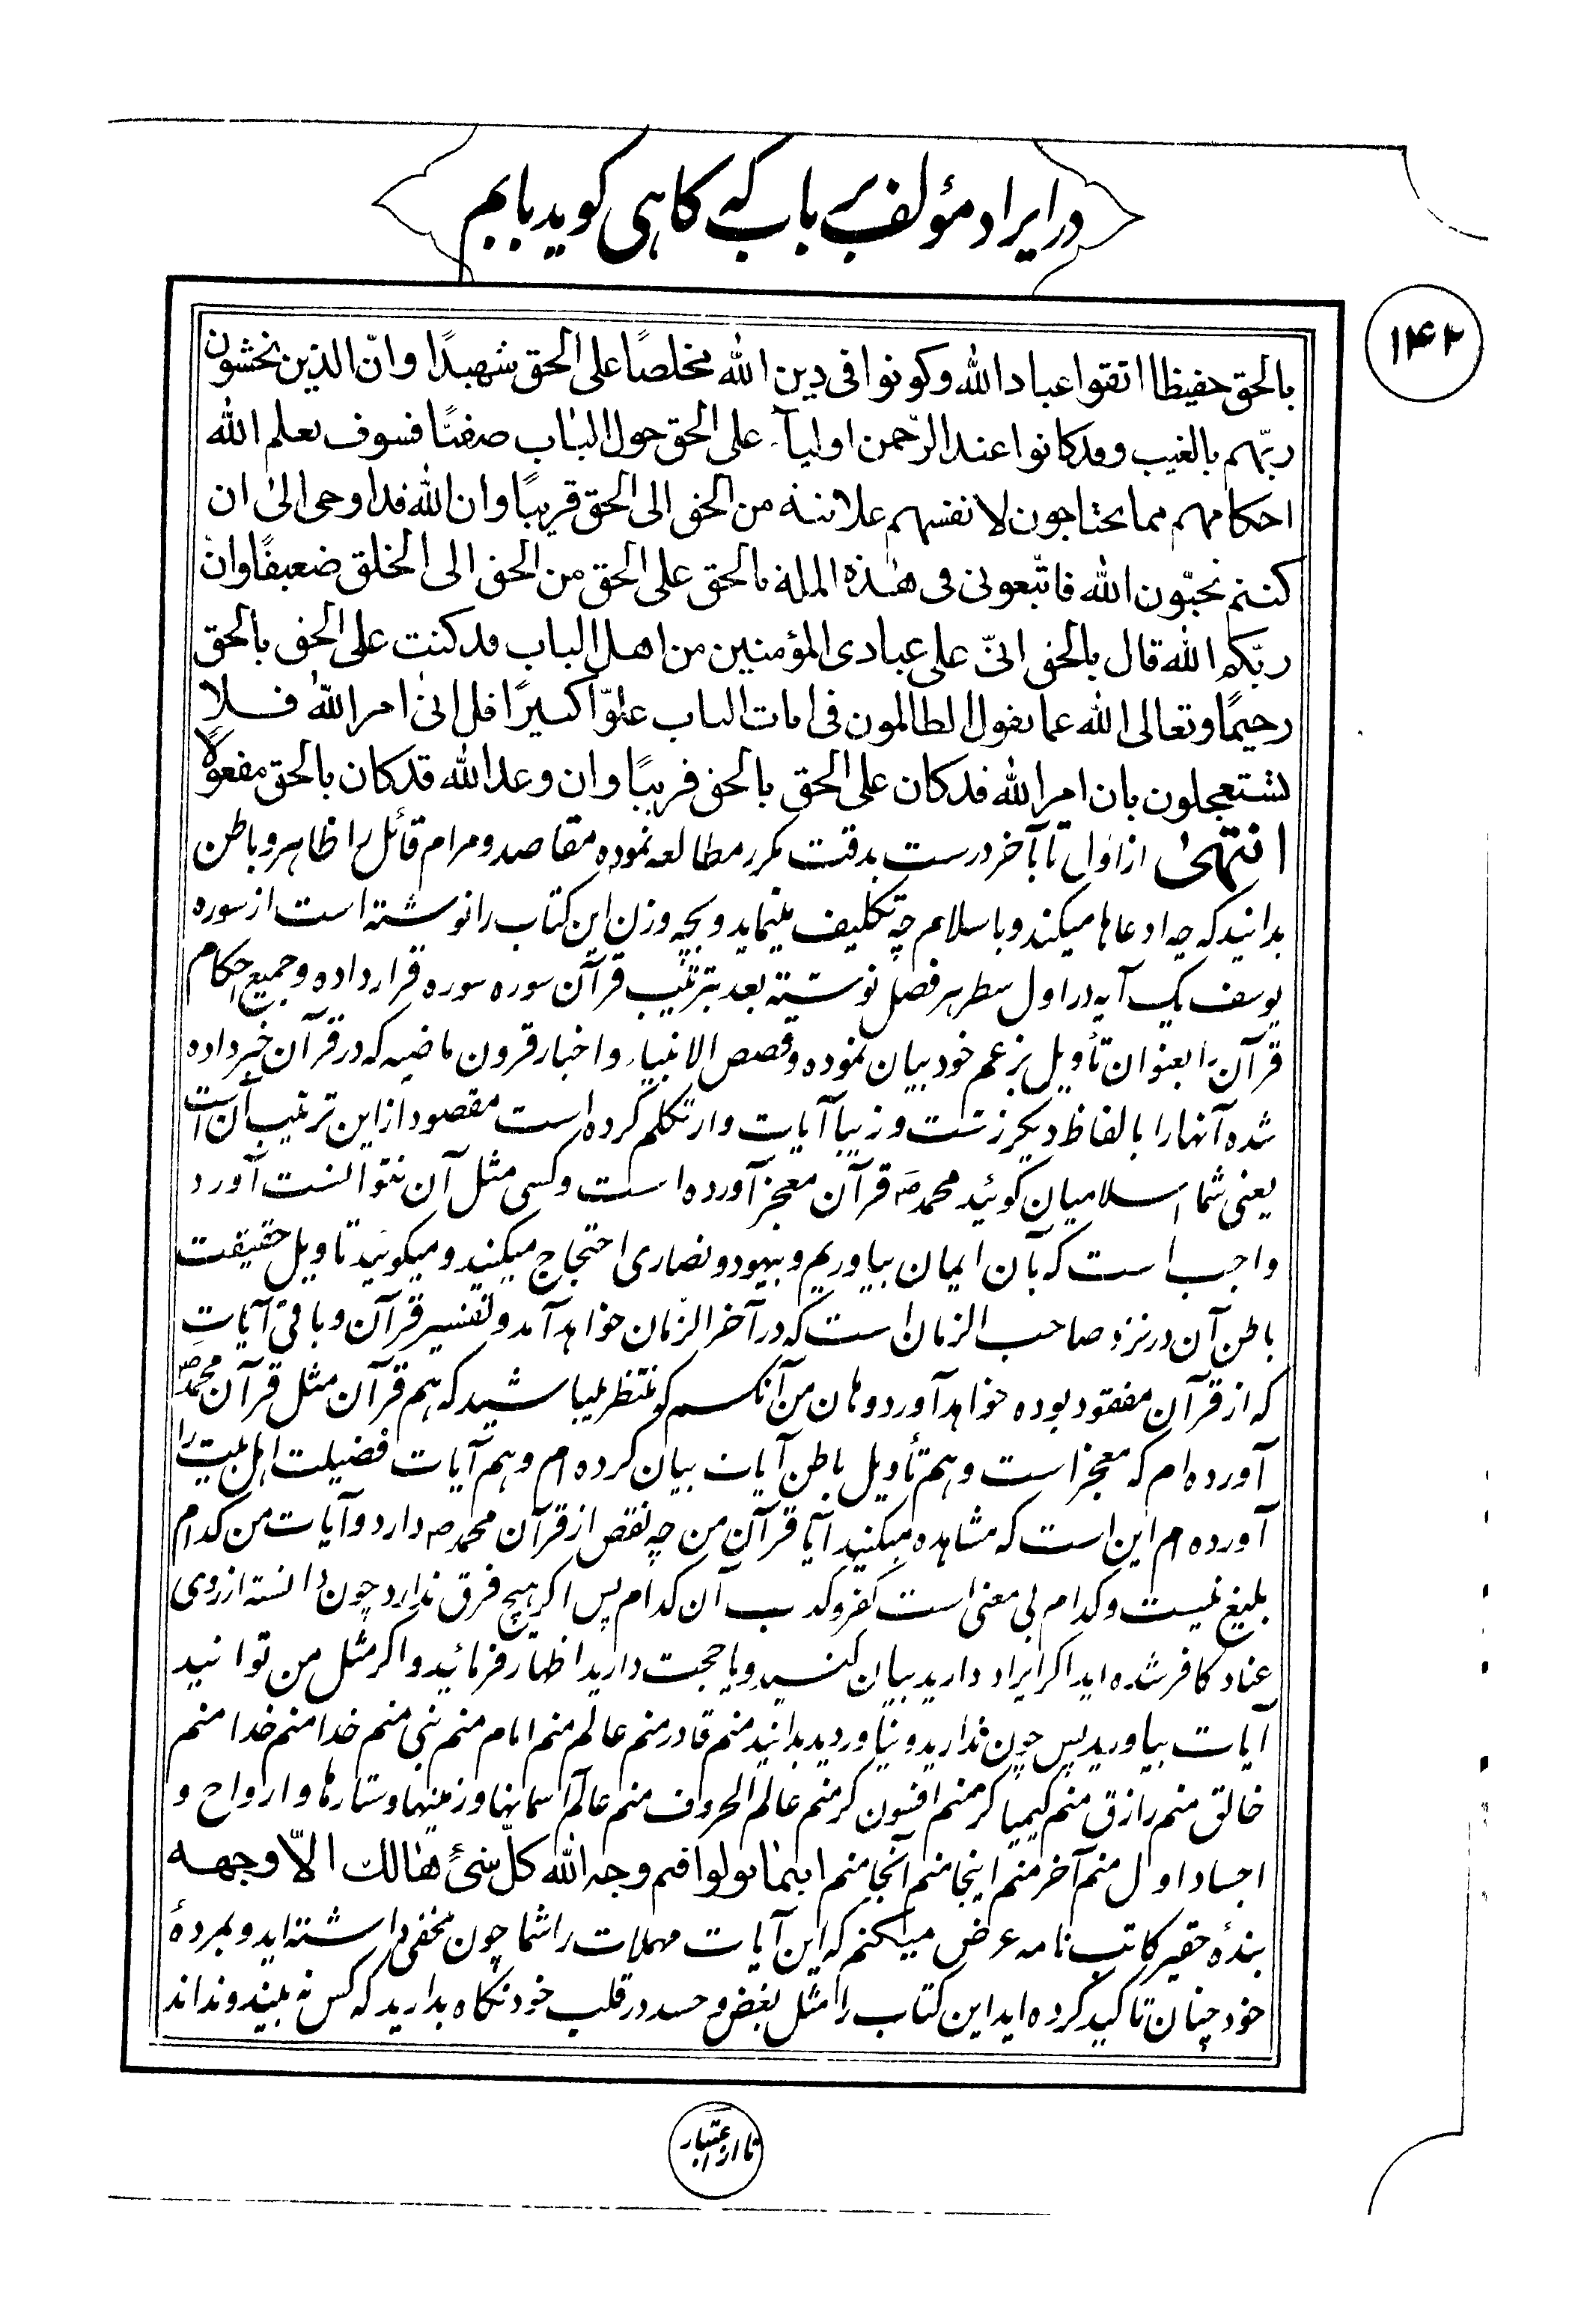 در ایراد مؤلف بر باب که گاهی گوید بابم
۱۴۲
بالحق حفیظا اتقوا عباد الله وکونوا فی دین الله مخلصًا علی الحق شهیدًا وانّ الذین یخشون
ربّهم بالغیب وقد کانوا عند الرّحمن اولیآء علی الحق حول الباب صفتًا فسوف یعلم الله
احکامهم مما یحتاجون لانفسهم علانیة من الحق الی الحق قریبًا وان الله قد اوحی الیٰ ان
کنتم تحبّون الله فاتّبعونی فی هٰذه الملة بالحق علی الحق من الحق الی الخلق ضعیفًا وان
ربّکم الله قال بالحق انّی علی عبادی المؤمنین من اهل الباب قد کنت علی الحق بالحق
رحیمًا وتعالی الله عما یقول الظالمون فی امات الباب علوّاً کبیرًا قل انیٰ امر الله فلا
تستعجلون بان امر الله قد کان علی الحق بالحق قریبًا وان وعد الله قد کان بالحق مفعولًا
انتهیٰ از اول تا بآخر درست بدقت مکرر مطالعه نموده مقاصد و مرام قائل را ظاهر و باطن
بدانید که چه ادعاها میکند و باسلام چه تکلیف مینماید و بچه وزن این کتاب را نوشته است از سوره
یوسف یک آیه در اول سطر هر فصل نوشته بعد بترتیب قرآن سوره سوره قرار داده و جمیع احکام
قرآن را بعنوان تأویل بزعم خود بیان نموده و قصص الانبیاء و اخبار قرون ماضیه که در قرآن خبر داده
شده آنها را بالفاظ دیگر زشت و زیبا آیات وار تکلم کرده است مقصود از این ترتیب آن است
یعنی شما اسلامیان گوئید محمد ص قرآن معجز آورده است و کسی مثل آن نتوانست آورد
واجب است که بآن ایمان بیاوریم و بیهود و نصاری احتجاج میکنید و میگوئید تاویل حقیقت
باطن آن در نزد صاحب الزمان است که در آخر الزّمان خواهد آمد و تفسیر قرآن و باقی آیات
که از قرآن مفقود بوده خواهد آورد و هان من آنکسم که منتظر میباشید که هم قرآن مثل قرآن محمد ص
آورده ام که معجز است و هم تأویل باطن آیات بیان کرده ام و هم آیات فضیلت اهل بیت را
آورده ام این است که مشاهده میکنید آیا قرآن من چه نقص از قرآن محمد ص دارد و آیات من کدام
بلیغ نیست و کدام بی معنی است کفر و کذب آن کدام پس اگر هیچ فرق ندارد چون دانسته از روی
عناد کافر شده اید اگر ایراد دارید بیان کنید و یا حجت دارید اظهار فرمائید و اگر مثل من توانید
آیات بیاورید پس چون ندارید و نیاوردید بدانید منم قادر منم عالم منم امام منم نبی منم خدا منم خدا منم
خالق منم رازق منم کیمیاگر منم افسون گر منم عالم الحروف منم عالم آسمانها و زمینها و ستارها و ارواح و
اجساد اول منم آخر منم اینجا منم آنجا منم اینما تولوا فثم وجه الله کلّ شئ هالك الاّ وجهه
بندۀ حقیر کاتب نامه عرض میکنم که این آیات مهملات را شما چون مخفی داشته اید و بمردۀ
خود چنان تاکید کرده اید این کتاب را مثل بغض و حسد در قلب خود نگاه بدارید که کس نه بیند و نداند
تا از اعتبار